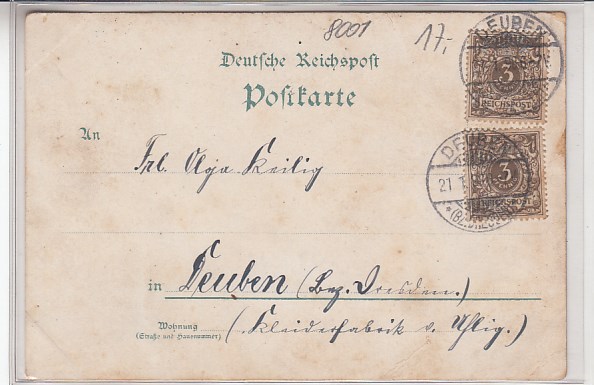 8001
17,-
Deutsche Reichspost
Postkarte
DEUBEN
3
REICHSPOST
An
Frl. Olga Keilig
DEUBEN
21
3
REICHSPOST
(BZ. DRESDEN)
in Deuben (Bez. Dresden.)
Wohnung
(Straße und Hausnummer)
(Kleiderfabrik v. Uhlig.)